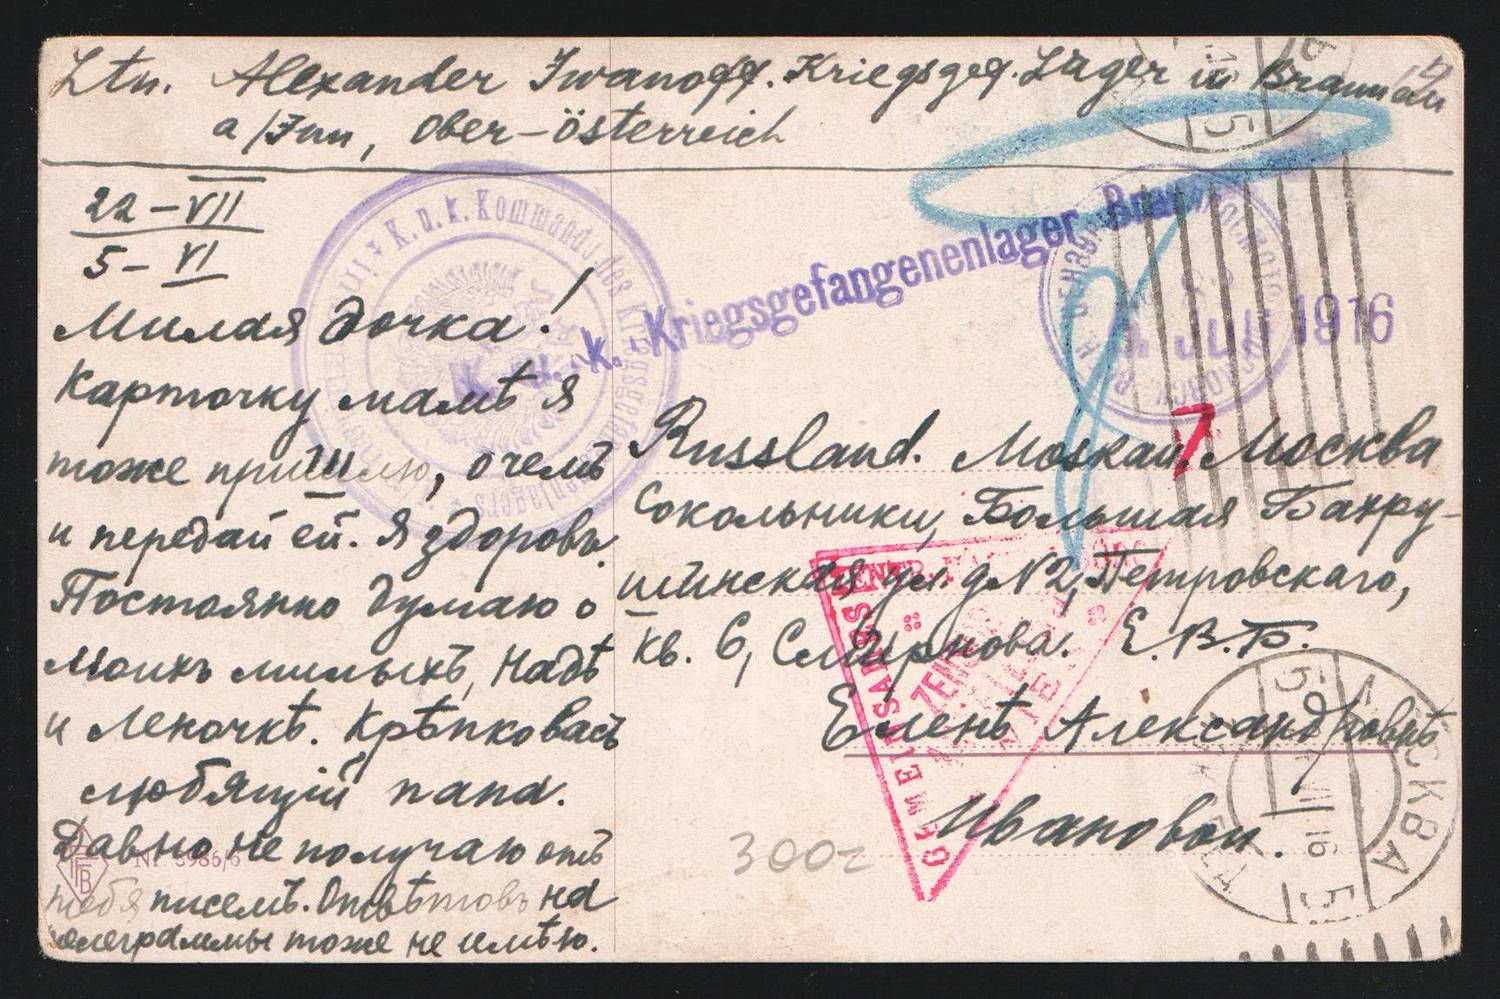 Ltn. Alexander Iwanoff. Kriegsgef. Lager in Braunau
a/Inn, Ober-Österreich
22-VII
5-VI
Милая дочка!
Карточку мамѣ я
тоже пришлю, о чемъ
и передай ей. Я здоровъ.
Постоянно думаю о
моихъ милыхъ, Надѣ
и Леночкѣ. Крѣпко васъ
любящій папа.
Давно не получаю отъ
тебя писемъ. Отвѣтовъ на
телеграммы тоже не имѣю.
Russland. Moskau. Москва
Сокольники, Большая Бахру-
шинская ул. д. №2, Петровскаго,
кв. 6, Смирнова. Е.В.Б.
Еленѣ Александровнѣ
Ивановой.
3002
K. u. k. Kriegsgefangenenlager Braunau
K. u. k. Kommando des Kriegsgefangenenlagers
JULI 1916
GEMEINSAMES ZENTR
ZENSUR
WIEN
МОСКВА
VII 16
Nr. 3986/6